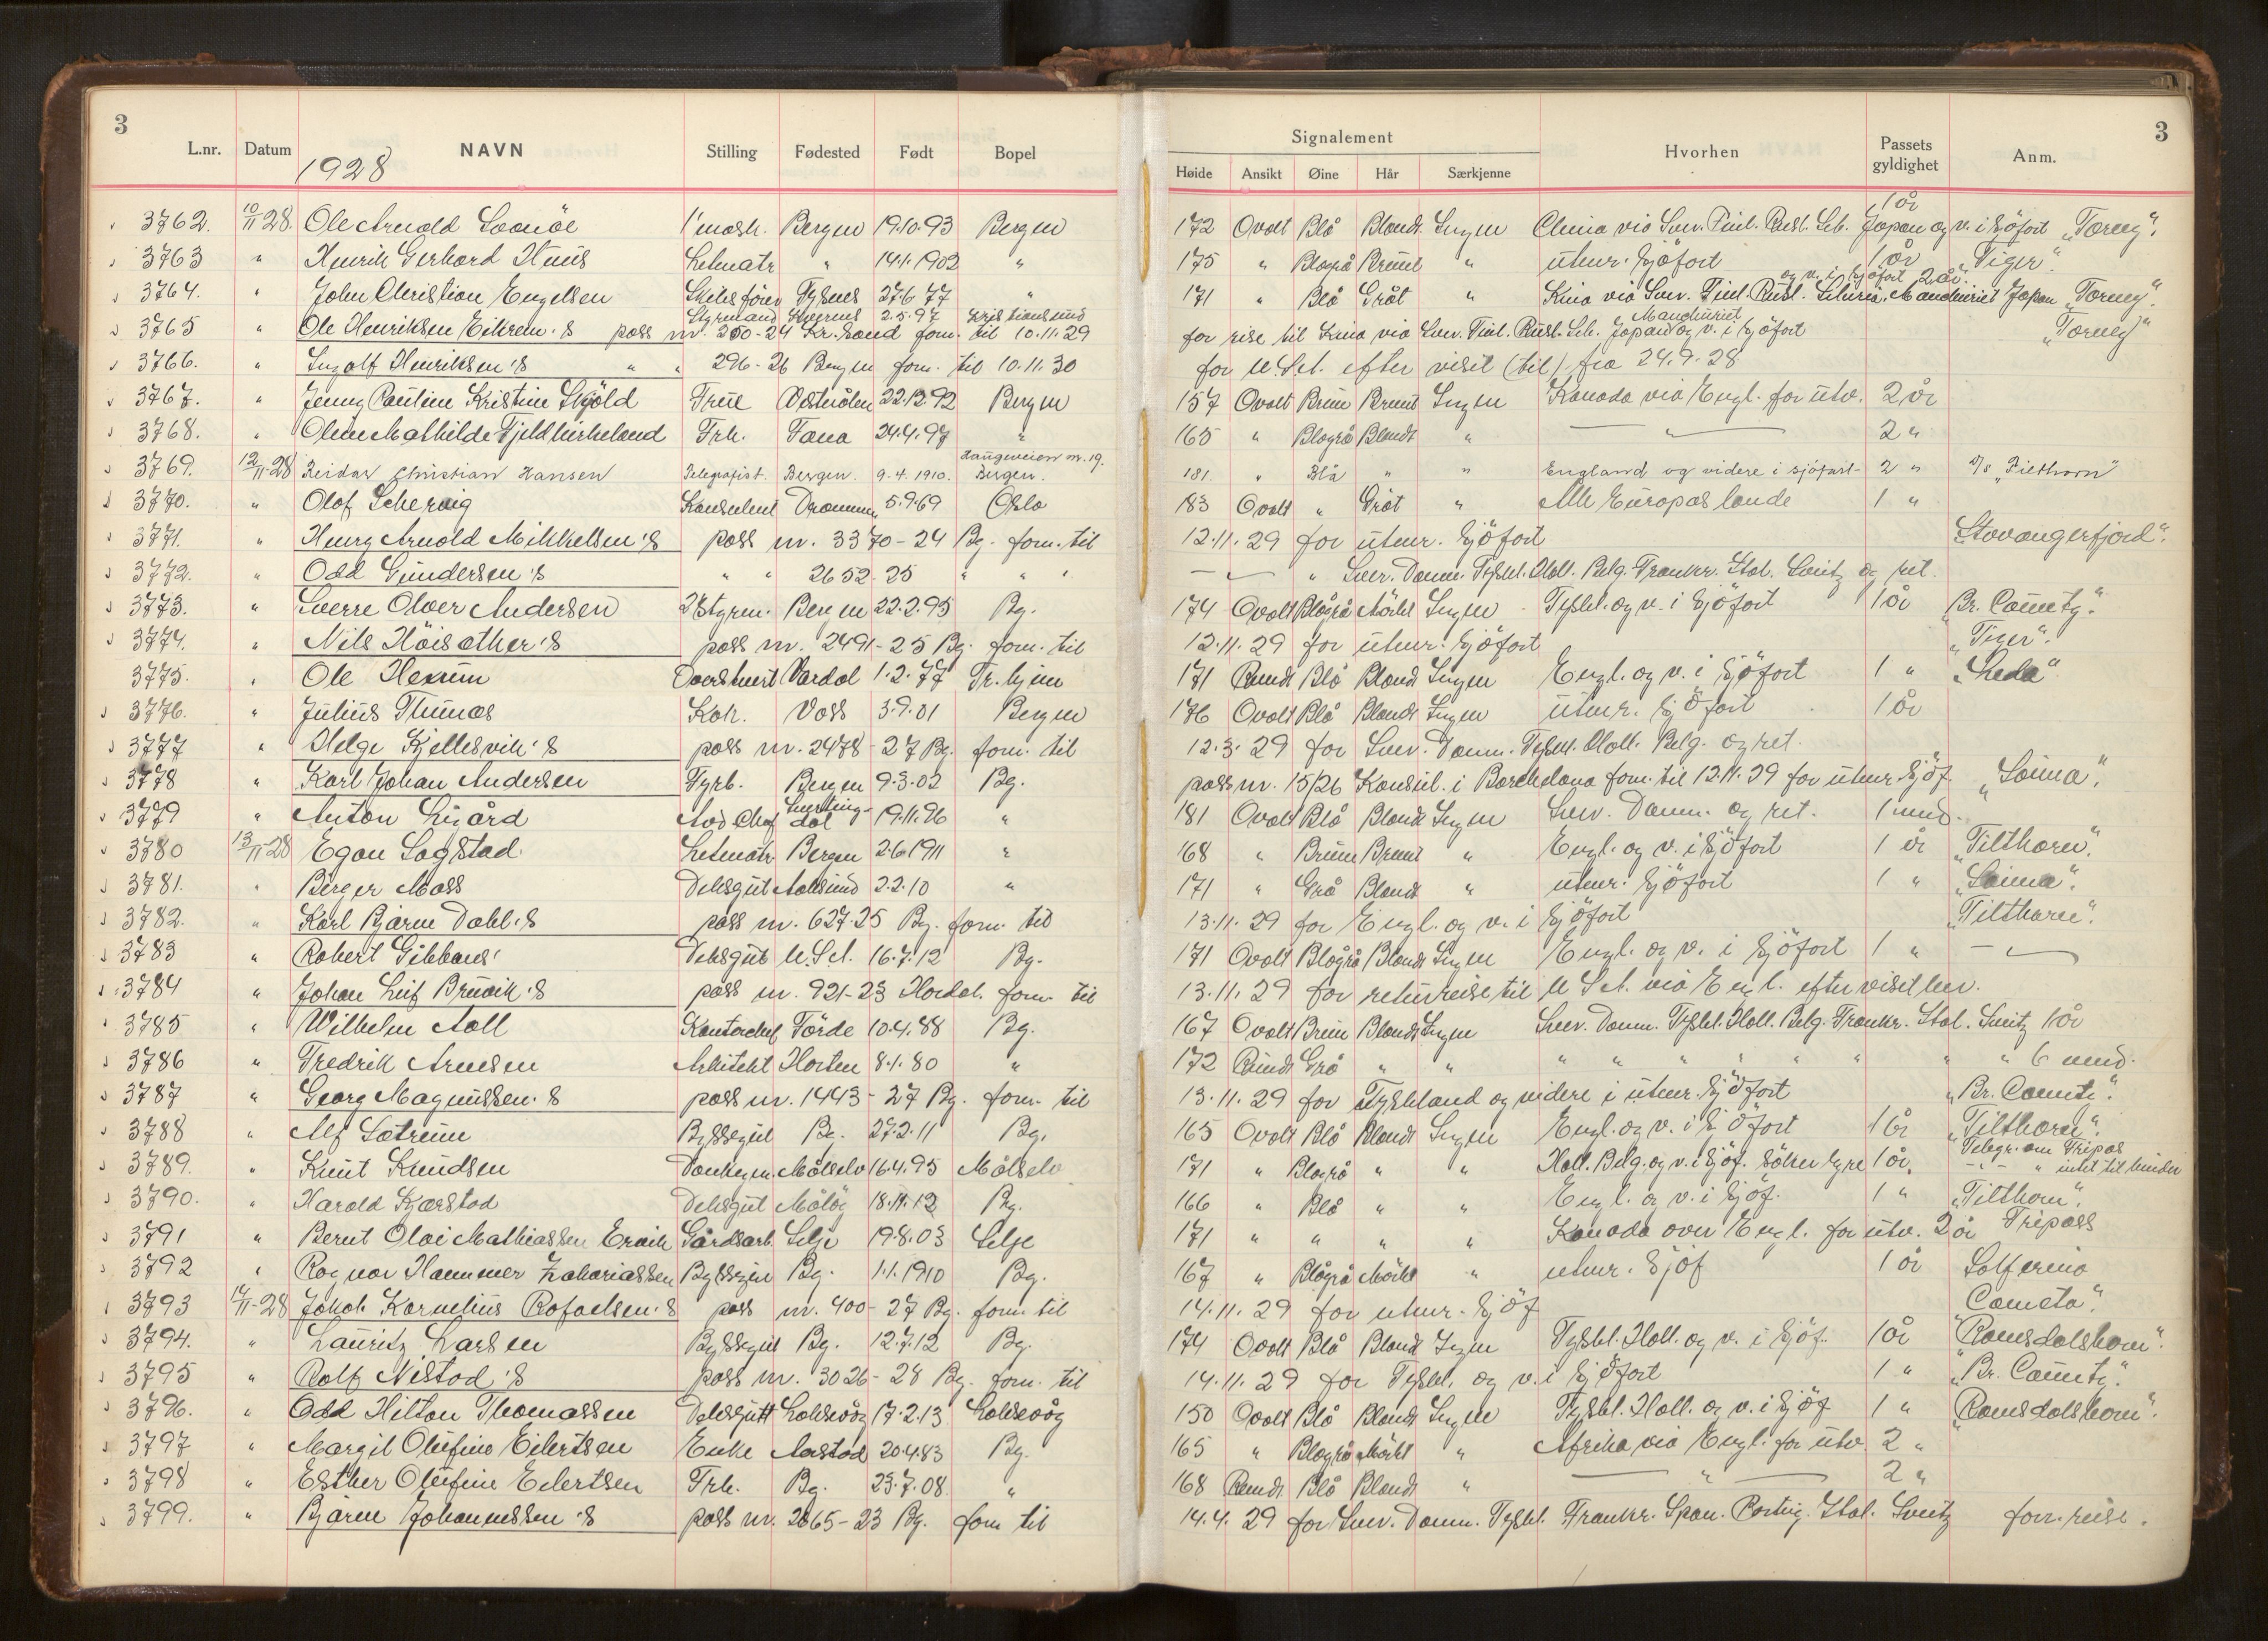 3
L.nr. Datum NAVN Stilling Fødested Født Bopel
1928
3762. 10/11 28. Ole Arnold 1' mask. Bergen 19.10.93 Bergen
3763 " Henrik Gerhard Huus Letmatr " 14.1.1902 "
3764. " John Christian Engelsen Skibsfører Tysnes 27.6 77 "
Styrmand 2.5.97 Kristiansund
3765 " Ole Henriksen Eikrem's pass nr. 250-24 Kr.sand forn. til 10.11.29
3766. " Ingolf Henriksen's " " 296-26 Bergen forn. til 10.11.30
3767. " Jenny Pauline Kristine Skjöld Frue Vesterålen 22.12.92 Bergen
3768. " Oline Mathilde Fjeldkirkeland Frk. Fana 24.4.97 "
Haugeveien nr. 19.
3769. 12/11-28 Reidar Christian Hansen Telegrafist. Bergen. 9-4.1910. Bergen.
3770. " Olaf Konsulent Drammen 5.9 69 Oslo
3771. " Henry Arnold Mikkelsen's pass nr. 3370-24 Bg. forn. til
3772. " Odd Gundersen's " " 2652-25 " " "
3773. " Sverre Olver Andersen 2 Styrm. Bergen 22.2.95 Bg.
3774. " Nils Höisæther's pass nr. 2491-25 Bg. forn. til
3775. " Ole Hexum Vardal 1.2.77 Tr.hjem
3776. " Julius Thunæs Kok. Voss 3.9.01 Bergen
3777 " Helge Kjellesvik's pass nr. 2478-27 Bg. forn. til
3778 " Karl Johan Andersen Fyrb. Bergen 9.3.02 Bg.
3779 " Anton Avd Chef 19.11.96 "
3780 13/11-28 Egon Sagstad Letmatr Bergen 2.6.1911 "
3781. " Birger Moss Deksgut Aalesund 2.2.10 "
3782. " Karl Bjarne Dahl's pass nr. 627-25 Bg. forn. til
3783 " Robert Gibbons Deksgut U.S.A. 16.7.12 Bg.
3784 " Johan Leif Bruvik's pass nr. 921-23 Hordal. forn. til
3785 " Wilhelm Aall Kontorchef Förde 10.4.88 Bg.
3786 " Fredrik Arnesen Arkitekt Horten 8.1.80 "
3787 " Georg Magnussen's pass nr. 1443-27 Bg. forn. til
3788 " Alf Sætrum Byssegut Bg. 27.2.11 Bg.
3789. " Knut Knudsen Målselv 16.4.95 Målselv
3790. " Harald Kjærstad Deksgut Måløy 18.11.12 Bg.
3791 " Bernt Olai Mathiassen Ervik Gårdsarb. Selje 19.8.03 Selje
3792 " Ragnar Hammer Zakariassen Byssegut Bg. 1.1.1910 Bg.
3793 14/11-28 Jakob Kornelius Rafaelsen's pass nr. 400-27 Bg. forn. til
3794. " Lauritz Larsen Byssegut Bg. 12.7.12 Bg.
3795 " Rolf Nistad's pass nr. 3026-28 Bg. forn. til
3796. " Odd Hilton Thomassen Deksgutt Loksevåg 17.2.13 Loksevåg
3797 " Margit Olufine Eilertsen Enke Aarstad 20.4.83 Bg.
3798 " Esther Olufine Eilertsen Frk. Bg. 23.7.08 "
3799. " Bjarne Johannessen's pass nr. 2865-23 Bg. forn til
3
Signalement
Høide Ansikt Øine Hår Særkjenne Hvorhen Passets gyldighet Anm.
1 år
172 Ovalt Blå Blondt Ingen China via Sver. Finl. Rusl. Sib. Japan og v. i Sjöfart "Torney".
175 " Blågrå Brunt " utenr. Sjöfart 1 år "Tiger".
og v. i Sjöfart 2 år.
171 " Blå Gråt " Kina via Sver. Finl. Rusl. Siberia. Mandsjuriet Japan "Torney".
Mandsjuriet
for rise til Kina via Sver. Finl. Rusl. Sib. Japan og v. i Sjöfart "Torney"
for U.S.A. efter visit (til) fra 24.9.28
157 Ovalt Brune Brunt Ingen Kanada via Engl. for utv. 2 år
165 " Blågrå Blondt " — " — 2 "
181. " Blå " " England og videre i sjöfart 2 " D/s "Tilthorn"
183 Ovalt " Gråt " Alle Europas lande 1 "
12.11.29 for utenr. Sjöfart "Stavangerfjord".
— " Sver. Danm. Tyskl. Holl. Belg. Frankr. Ital. Sveitz og ret.
174 Ovalt Blågrå Mörkt Ingen Tyskl. og v. i Sjöfart 1 år "Br. County".
12.11.29 for utenr. Sjöfart "Tiger".
171 Rundt Blå Blond Ingen Engl. og v. i Sjöfart 1 " "Leda"
176 Ovalt Blå Blondt Ingen utenr. Sjöfart 1 år
12.3.29 for Sver. Danm. Tyskl. Holl. Belg. og ret.
pass nr. 15/26 Konsul. i Barcelona forn. til 12.11.29 for utenr. Sjöf. "Saima".
181 Ovalt Blå Blondt Ingen Sver. Danm. og ret. 1 mnd.
168 " Brune Brunt " Engl. og v. i Sjöfart 1 år "Tilthorn".
171 " Grå Blondt " utenr. Sjöfart 1 " "Saima".
13.11.29 for Engl. og v. i Sjöfart "Tilthorn".
171 Ovalt Blågrå Blondt Ingen Engl. og v. i Sjöfart 1 " — " —
13.11.29 for returreise til U.S.A. via Engl. efter visit her.
167 Ovalt Brune Blondt Ingen Sver. Danm. Tyskl. Holl. Belg. Frankr. Ital. Sveitz 1 år
172 Rundt Grå " " " " " " " " " " 6 mnd.
13.11.29 for Tyskland og videre i utenr. Sjöfart "Br. County".
165 Ovalt Blå Blondt Ingen Engl. og v. i Sjöfart 1 år "Tilthorn".
Telegr. om Tripas
171 " Blågrå " " Holl. Belg. og v. i Sjöf. söker hyre 1 år. — " — " intet til hinder
166 " Blå " " Engl. og v. i Sjöf. 1 " "Tilthorn".
171 " " " " Kanada over Engl. for utv. 2 år Tripass
167 " Blågrå Mörkt " utenr. Sjöf 1 år Solferino
14.11.29 for utenr. Sjöf "Cometa".
174 Ovalt Blå Blond Ingen Tyskl. Holl. og v. i Sjöf. 1 år "Romsdalshorn".
14.11.29 for Tyskl. og v. i Sjöfart 1 " "Br. County".
150 Ovalt Blå Blondt Ingen Tyskl. Holl. og v. i Sjöf 1 " "Romsdalshorn".
165 " Blågrå Mörkt " Afrika via Engl. for utv. 2 "
168 Rundt Blå Blondt " — " — 2 "
14.4.29 for Sver. Danm. Tyskl. Frankr. Span. Portug. Ital. Sveitz forr. reise.